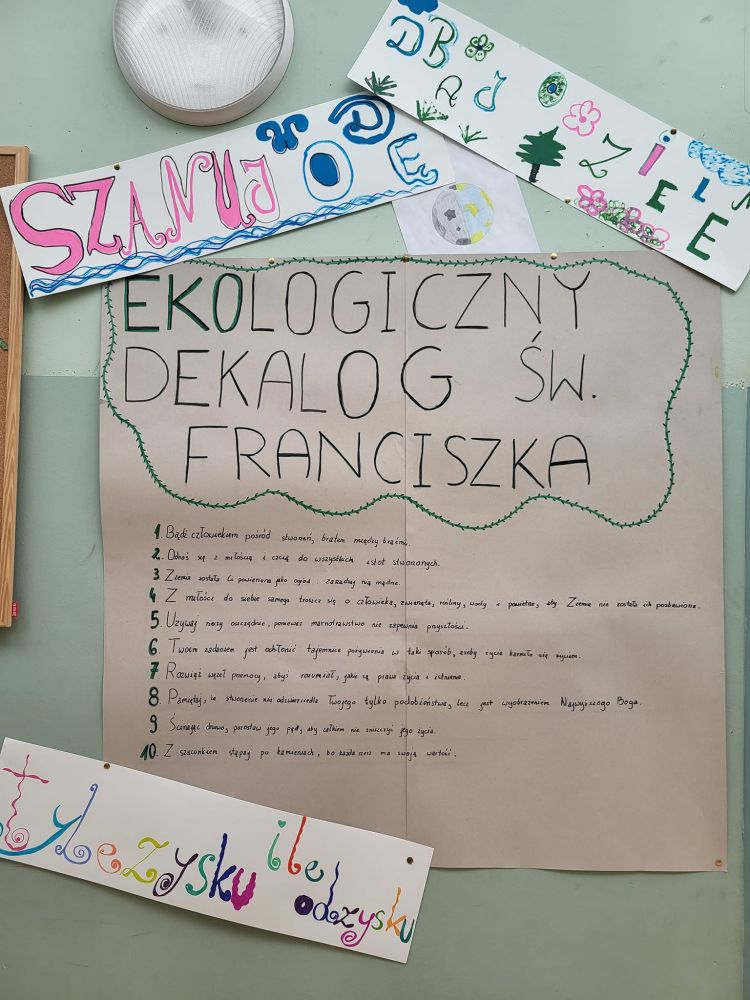 DBAJ O ZIELEŃ
SZANUJ WODĘ
EKOLOGICZNY
DEKALOG ŚW.
FRANCISZKA
1. Bądź człowiekiem pośród stworzeń, bratem między braćmi.
2. Odnoś się z miłością i czcią do wszystkich istot stworzonych.
3 Ziemia została Ci powierzona jako ogród : zarządzaj nią mądrze.
4 Z miłości do siebie samego troszcz się o człowieka, zwierzęta, rośliny, wody i powietrze, aby Ziemia nie została ich pozbawiona.
5 Używaj rzeczy oszczędnie, ponieważ marnotrawstwo nie zapewnia przyszłości.
6 Twoim zadaniem jest odsłonić tajemnicę pożywienia w taki sposób, ażeby życie karmiło się życiem.
7 Rozwiąż węzeł przemocy, abyś rozumiał, jakie są prawa życia i istnienia.
8 Pamiętaj, że stworzenie nie odzwierciedla Twojego tylko podobieństwa, lecz jest wyobrażeniem Najwyższego Boga.
9 Ścinając drzewo, pozostaw jego pęd, aby całkiem nie zniszczyć jego życia.
10 Z szacunkiem stąpaj po kamieniach, bo każda rzecz ma swoją wartość.
tyle zysku ile
odzysku